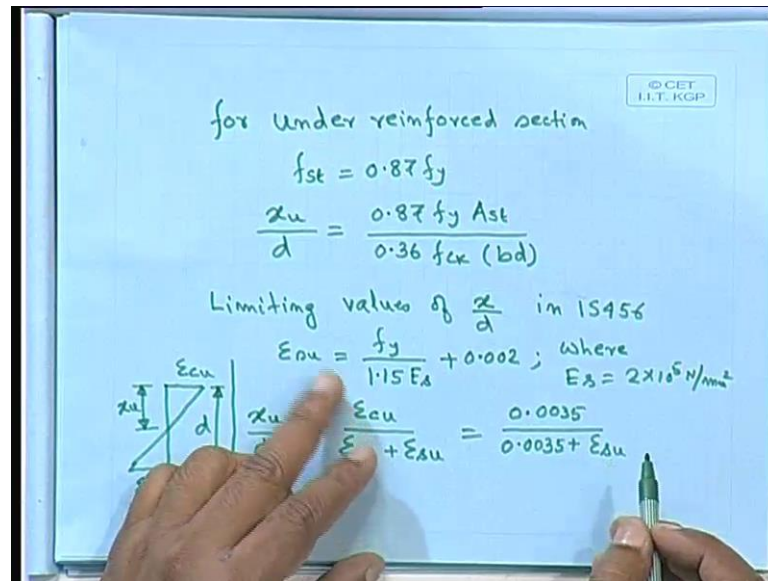 © CET
I.I.T. KGP
for under reinforced section
fst = 0.87 fy
xu/d = 0.87 fy Ast / 0.36 fck (bd)
Limiting values of x/d in IS456
εsu = fy / 1.15 Es + 0.002 ; where
Es = 2×10⁵ N/mm²
εcu
xu
d
xu εcu / + εsu = 0.0035 / 0.0035 + εsu